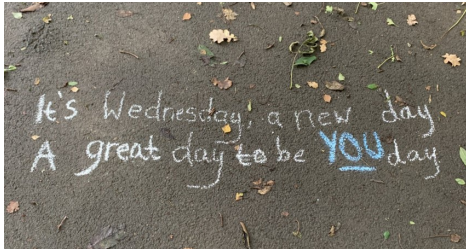 It's Wednesday, a new day
A great day to be YOU day